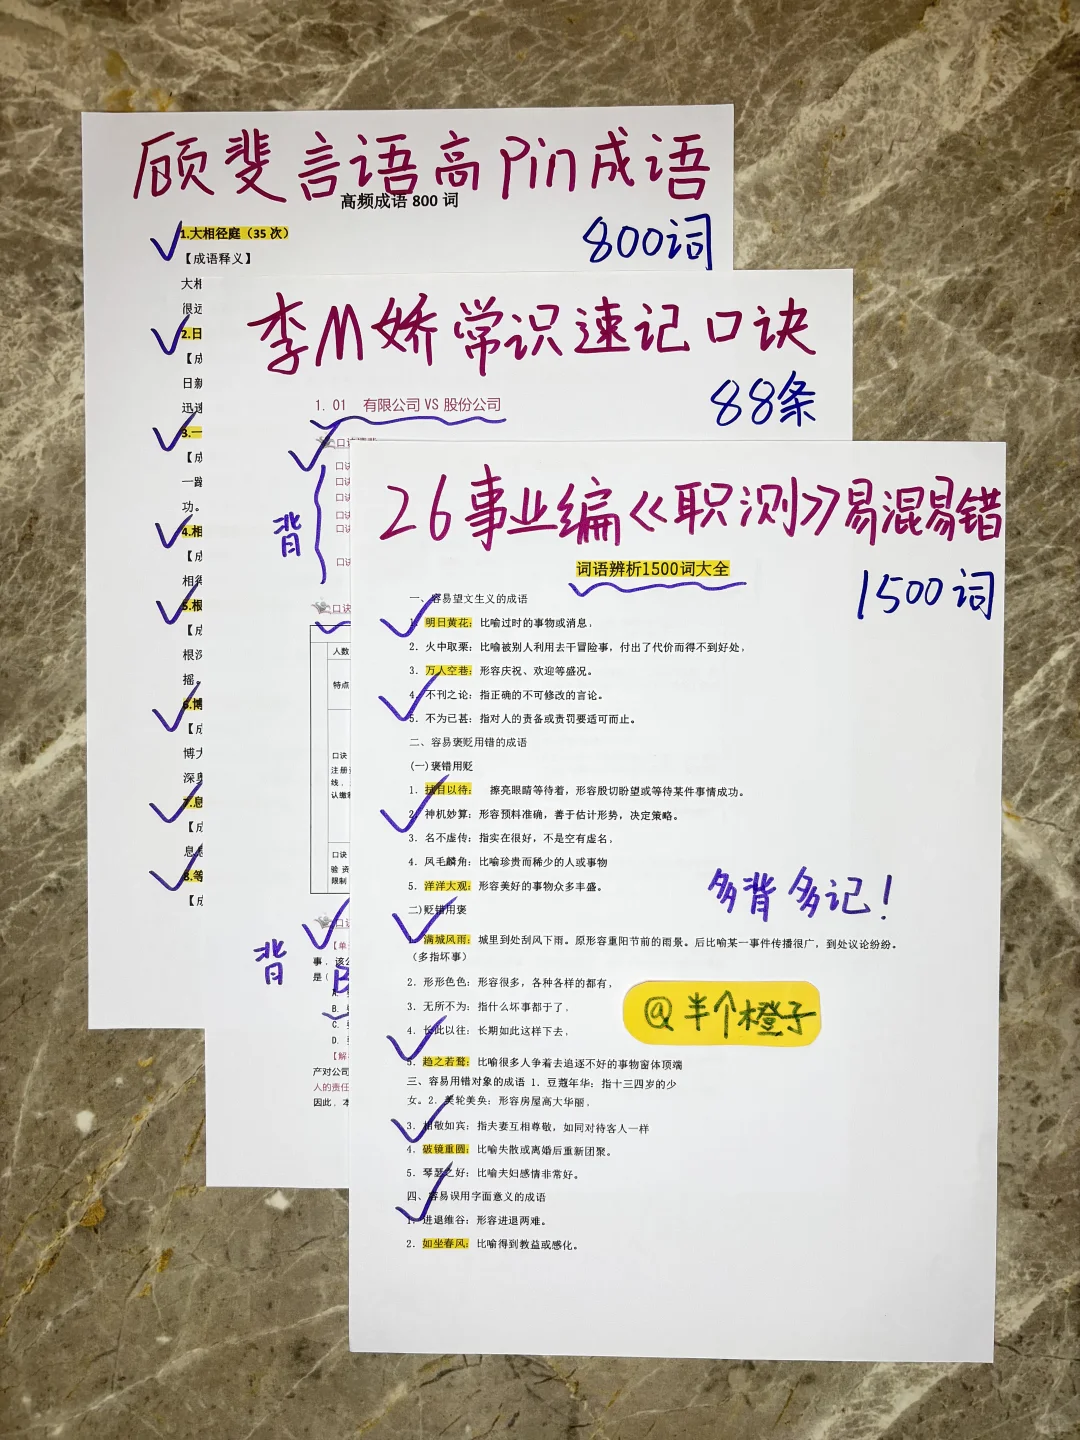 顾斐言语高Pin成语
高频成语 800 词
800词
1.大相径庭（35 次）
【成语释义】
大相
很远
2.日
【成
日新
迅速
3.一
【成
一蹴
功。
4.相
【成
相得
5.根
【成
根深
摇。
6.博
【成
博大
深奥
7.息
【成
息息
8.等
【成
李M娇常识速记口诀
88条
1. 01 有限公司 VS 股份公司
背
口诀
口诀
口诀
口诀
口诀
口诀
口诀
人数
特点
口诀
注册资
线，
认缴制
口诀
验 资
限制
背
口诀
【单
事，该公
是（
B
A.
B.
C.
D.
【解
产对公司
人的责任
因此，本
26事业编《职测》易混易错
词语辨析1500词大全
1500词
一、容易望文生义的成语
1. 明日黄花：比喻过时的事物或消息，
2. 火中取栗：比喻被别人利用去干冒险事，付出了代价而得不到好处，
3. 万人空巷：形容庆祝、欢迎等盛况。
4. 不刊之论：指正确的不可修改的言论。
5. 不为已甚：指对人的责备或责罚要适可而止。
二、容易褒贬用错的成语
(一)褒错用贬
1. 拭目以待： 擦亮眼睛等待着，形容殷切盼望或等待某件事情成功。
2. 神机妙算：形容预料准确，善于估计形势，决定策略。
3. 名不虚传：指实在很好，不是空有虚名，
4. 凤毛麟角：比喻珍贵而稀少的人或事物
5. 洋洋大观：形容美好的事物众多丰盛。
多背多记！
二)贬错用褒
1. 满城风雨：城里到处刮风下雨。原形容重阳节前的雨景。后比喻某一事件传播很广，到处议论纷纷。
（多指坏事）
2. 形形色色：形容很多，各种各样的都有，
3. 无所不为：指什么坏事都干了，
@半个橙子
4. 长此以往：长期如此这样下去，
5. 趋之若鹜：比喻很多人争着去追逐不好的事物窗体顶端
三、容易用错对象的成语 1. 豆蔻年华：指十三四岁的少
女。2. 美轮美奂：形容房屋高大华丽，
3. 相敬如宾：指夫妻互相尊敬，如同对待客人一样
4. 破镜重圆：比喻失散或离婚后重新团聚。
5. 琴瑟之好：比喻夫妇感情非常好。
四、容易误用字面意义的成语
1. 进退维谷：形容进退两难。
2. 如坐春风：比喻得到教益或感化。